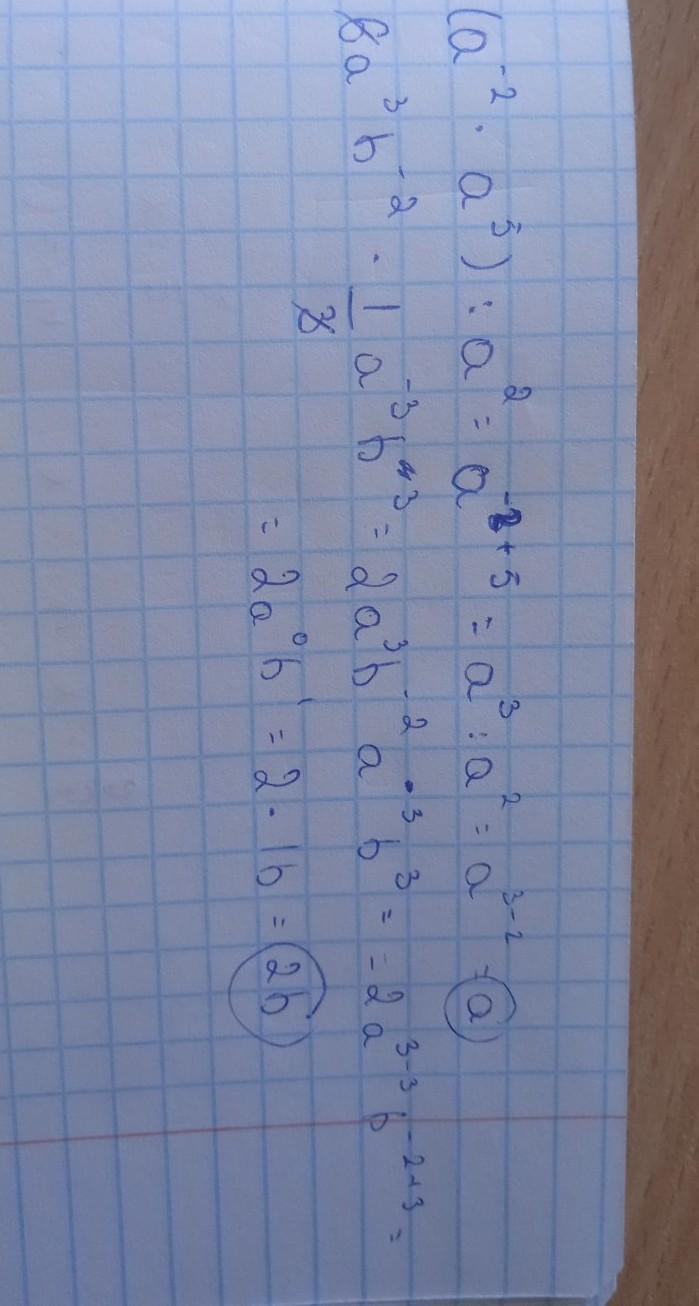 (a⁻² · a⁵) : a² = a⁻²⁺⁵ = a³ : a² = a³⁻² = a
6a³b⁻² · 1/3 a⁻³b³ = 2a³b⁻² a⁻³ b³ = -2a³⁻³ b⁻²⁺³ =
= 2a⁰b¹ = 2 · 1b = 2b